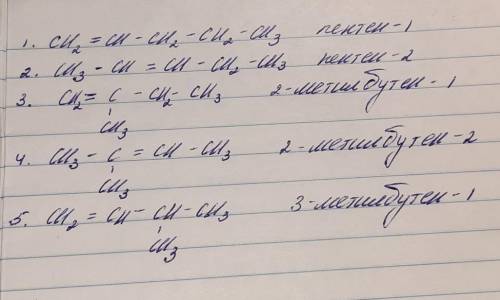 1. CH₂ = CH - CH₂ - CH₂ - CH₃ пентен-1
2. CH₃ - CH = CH - CH₂ - CH₃ пентен-2
3. CH₂ = C - CH₂ - CH₃ 2-метилбутен-1
CH₃
4. CH₃ - C = CH - CH₃ 2-метилбутен-2
CH₃
5. CH₂ = CH - CH - CH₃ 3-метилбутен-1
CH₃